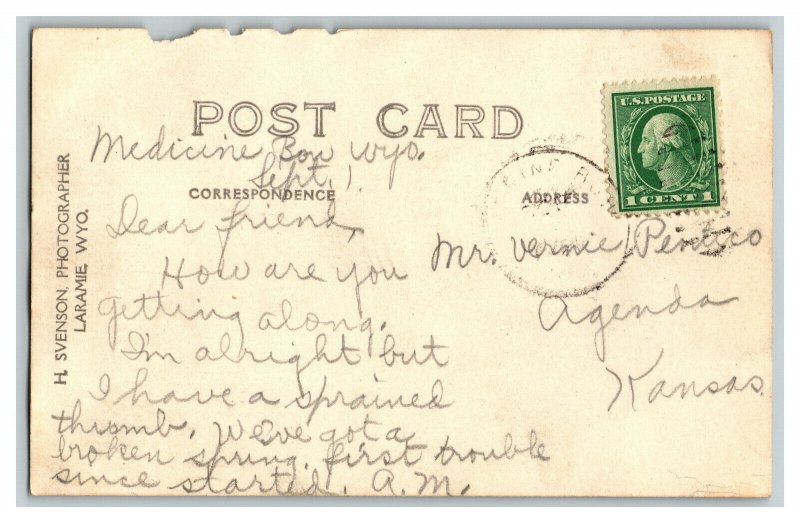 POST CARD
Medicine Bow Wyo.
Sept. 1
CORRESPONDENCE
Dear friend,
How are you
getting along.
I'm alright but
I have a sprained
thumb. We've got a
broken spring, first trouble
since started. A.M.
ADDRESS
Mr. Vernie Pentico
Agenda
Kansas.
U.S. POSTAGE
1 CENT 1
H. SVENSON, PHOTOGRAPHER
LARAMIE, WYO.